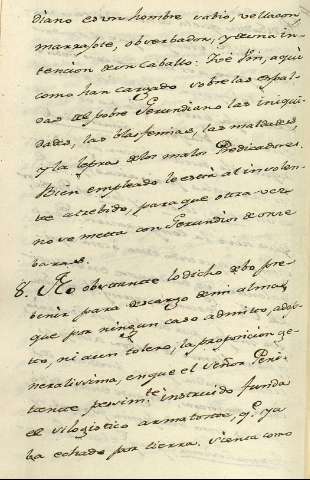 diano es un hombre sabio, vellacon,
marrajote, observador, y de una in-
tencion de un Caballo. Treé Vm. aqui
como han cargado sobre las espal-
das del pobre Gerundiano las iniqui-
dades, las blasfemias, las maldades,
y la lepra de los malos Predicadores.
Bien empleado le está al insolen-
te atrebido, para que otra vez
no se metta con Gerundios de onze
baras.
8. No obstante lo dicho debo pre-
benir para descargo de mi alma,
que por ningun caso admito, adop-
to, ni aun tolero, la proposicion ge-
neralissima, en que el Señor Peni-
tente pesim.te instruido funda
el silogistico armatoste, q.e ya
ba echado por tierra. Sienta como